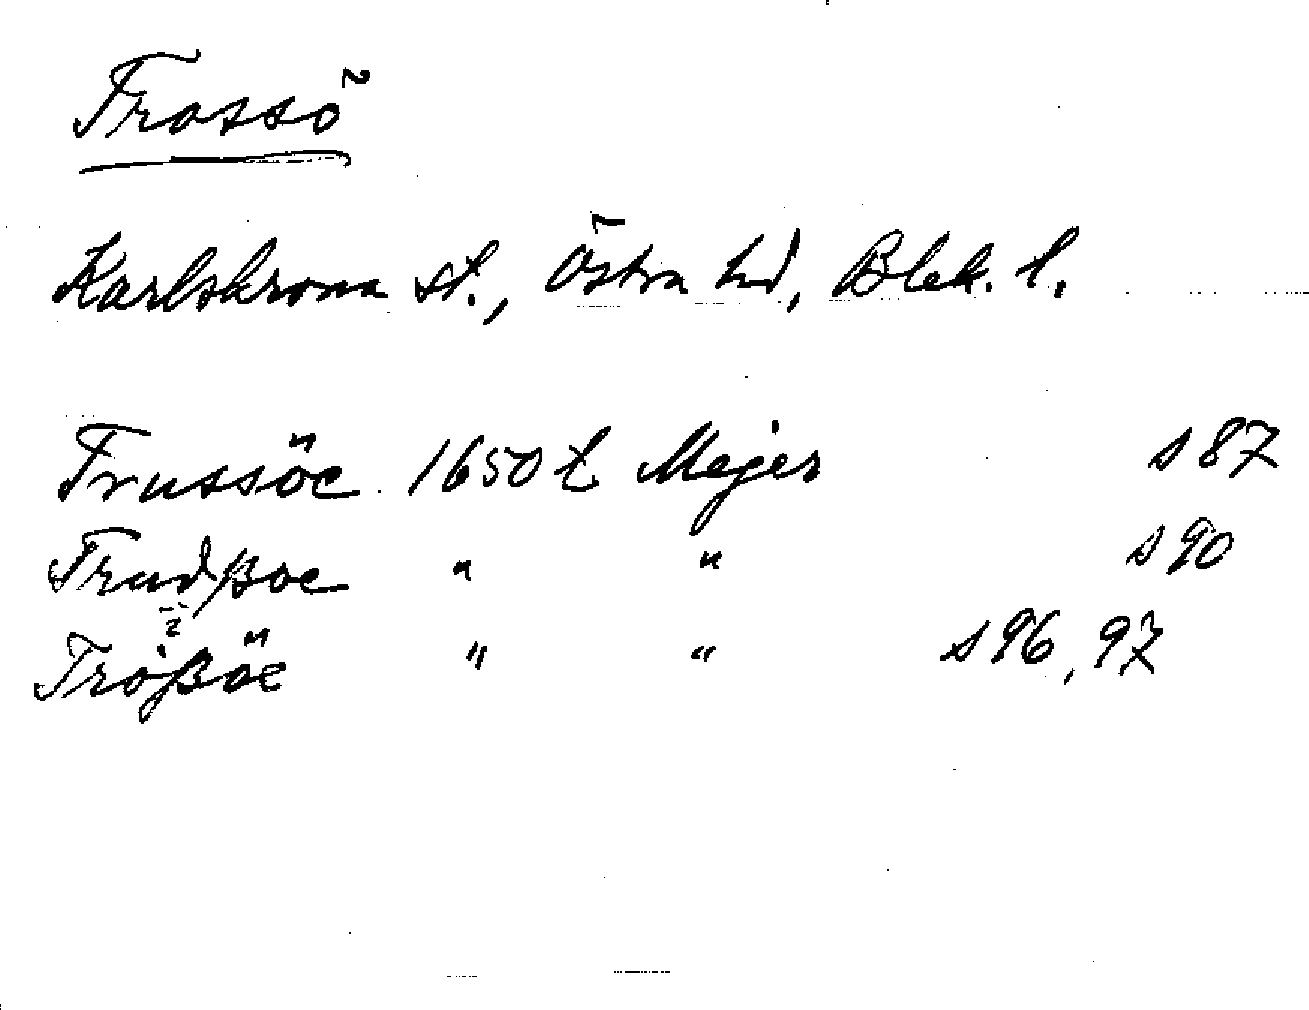 Trossö
Karlskrona st., Östra hd, Blek. l.
Trussöe 1650 t Mejer s 87
Trudßoe " " s 90
Trößöe " " s 96, 97